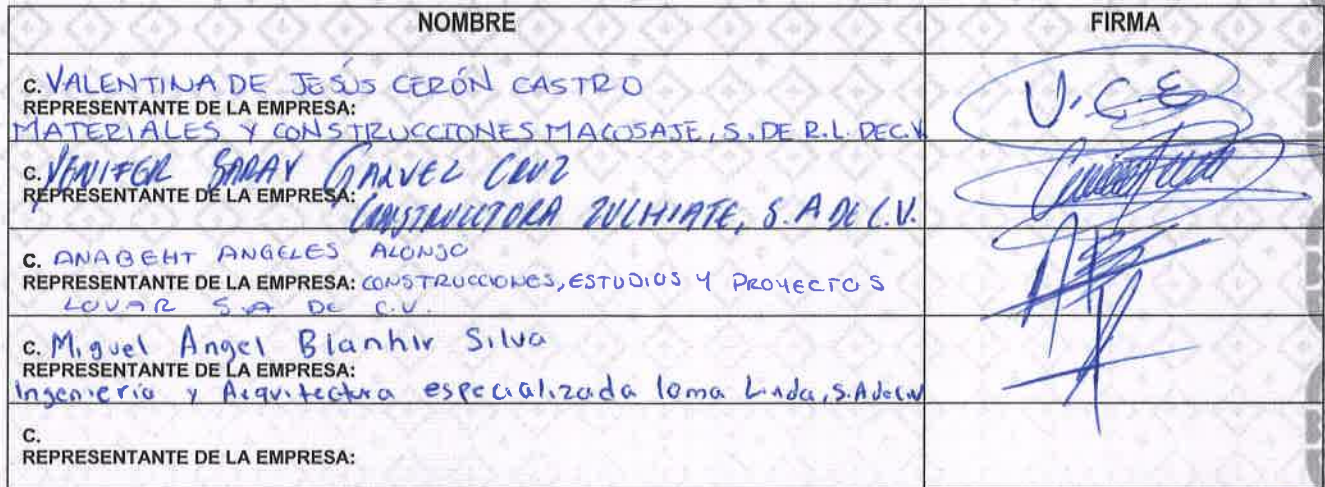 NOMBRE FIRMA
C. VALENTINA DE JESÚS CERÓN CASTRO
REPRESENTANTE DE LA EMPRESA:
MATERIALES Y CONSTRUCCIONES MACOSAJE, S. DE R.L. DE C.V
V.C.E
C. YENIFER SARAY GALVEZ CRUZ
REPRESENTANTE DE LA EMPRESA:
CONSTRUCCTORA ZULHIATE, S. A DE C.V.
C. ANABEHT ANGELES ALONSO
REPRESENTANTE DE LA EMPRESA: CONSTRUCCIONES, ESTUDIOS Y PROYECTOS
LOVAR S.A DE C.V.
C. Miguel Angel Blanhir Silva
REPRESENTANTE DE LA EMPRESA:
Ingeniería y Arquitectura especializada loma Linda, S.A de C.V
C.
REPRESENTANTE DE LA EMPRESA: